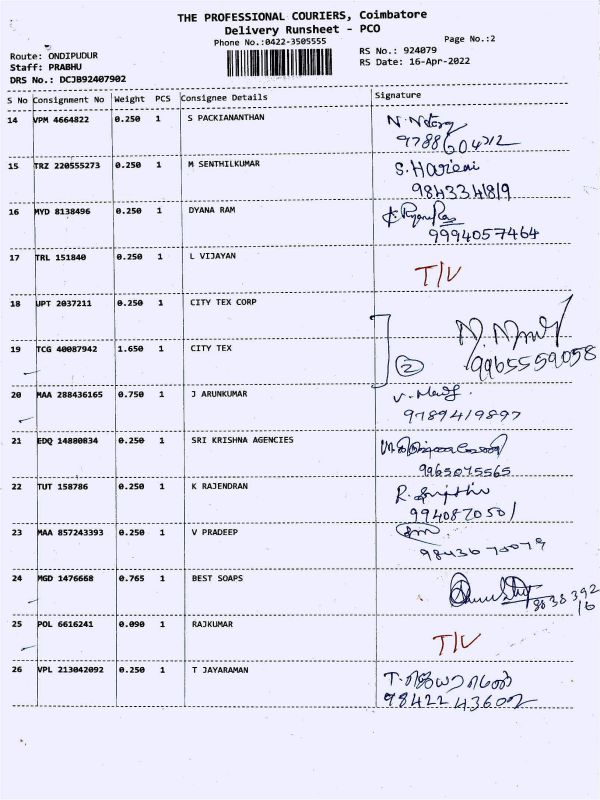 THE PROFESSIONAL COURIERS, Coimbatore
Delivery Runsheet - PCO
Phone No.:0422-3505555
Page No.:2
Route: ONDIPUDUR
RS No.: 924079
Staff: PRABHU
RS Date: 16-Apr-2022
DRS No.: DCJB92407902
S No Consignment No Weight PCS Consignee Details Signature
14 VPM 4664822 0.250 1 S PACKIANANTHAN
15 TRZ 220555273 0.250 1 M SENTHILKUMAR S.Harieni
9843341819
16 MYD 8138496 0.250 1 DYANA RAM
9994057464
17 TRL 151840 0.250 1 L VIJAYAN T/V
18 UPT 2037211 0.250 1 CITY TEX CORP
19 TCG 40087942 1.650 1 CITY TEX 2
9965559058
20 MAA 288436165 0.750 1 J ARUNKUMAR
9789419897
21 EDQ 14880834 0.250 1 SRI KRISHNA AGENCIES
9965075565
22 TUT 158786 0.250 1 K RAJENDRAN
9940870501
23 MAA 857243393 0.250 1 V PRADEEP
24 MGD 1476668 0.765 1 BEST SOAPS
25 POL 6616241 0.090 1 RAJKUMAR T/V
26 VPL 213042092 0.250 1 T JAYARAMAN
9842243602